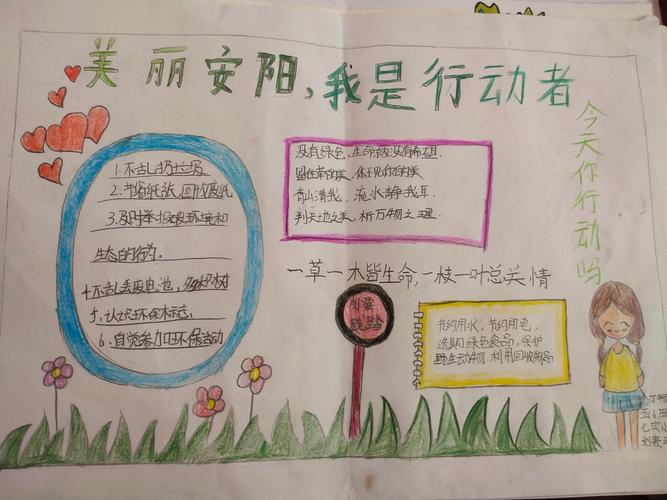 美丽安阳,我是行动者
今天你行动吗
1.不乱扔垃圾
2.节省纸张,回收废纸
3.及时举报破坏环境和
生态的行为。
4.不乱丢废电池,多植树
5、认识环保标志。
6、自觉参加环保活动
没有绿色,生命就没有希望
留住草的美,你
青山清我 流水静我耳
判天地之美,析万物之理
一草一木皆生命,一枝一叶总关情
勿
践踏
节约用水,节约用电,
选购绿色食品,保护
野生动物 利用回收物品
五6
七实小